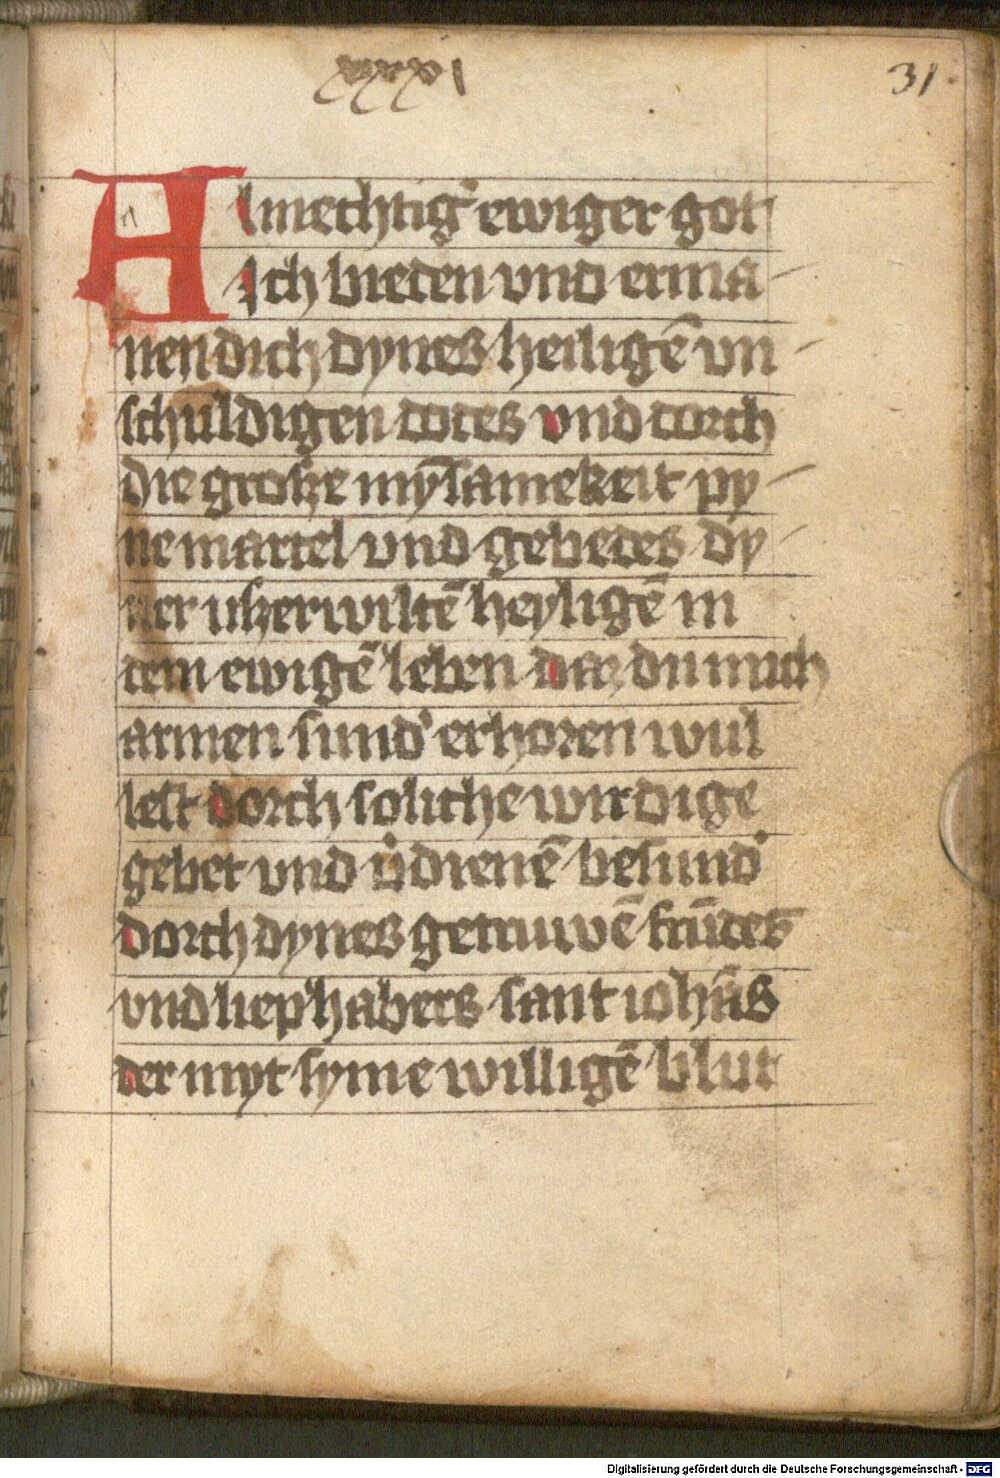 xxxxi
31
Almechtig' ewiger got
Ich bieten vnd erma
nen dich dynes heiligē vn
schuldigen todes vnd dorch
die grosze mȳsamekeit py
ne martel vnd gebetes dy
ner vszerwiltē heyligē in
dem ewigē leben daz du mich
armen sund' erhoren wul
lest dorch soliche wirdige
gebet vnd v'dienē besund'
dorch dynes getruwē frūdes
vnd liephabers sant iohās
der myt syme willigē blut
Digitalisierung gefördert durch die Deutsche Forschungsgemeinschaft - DFG